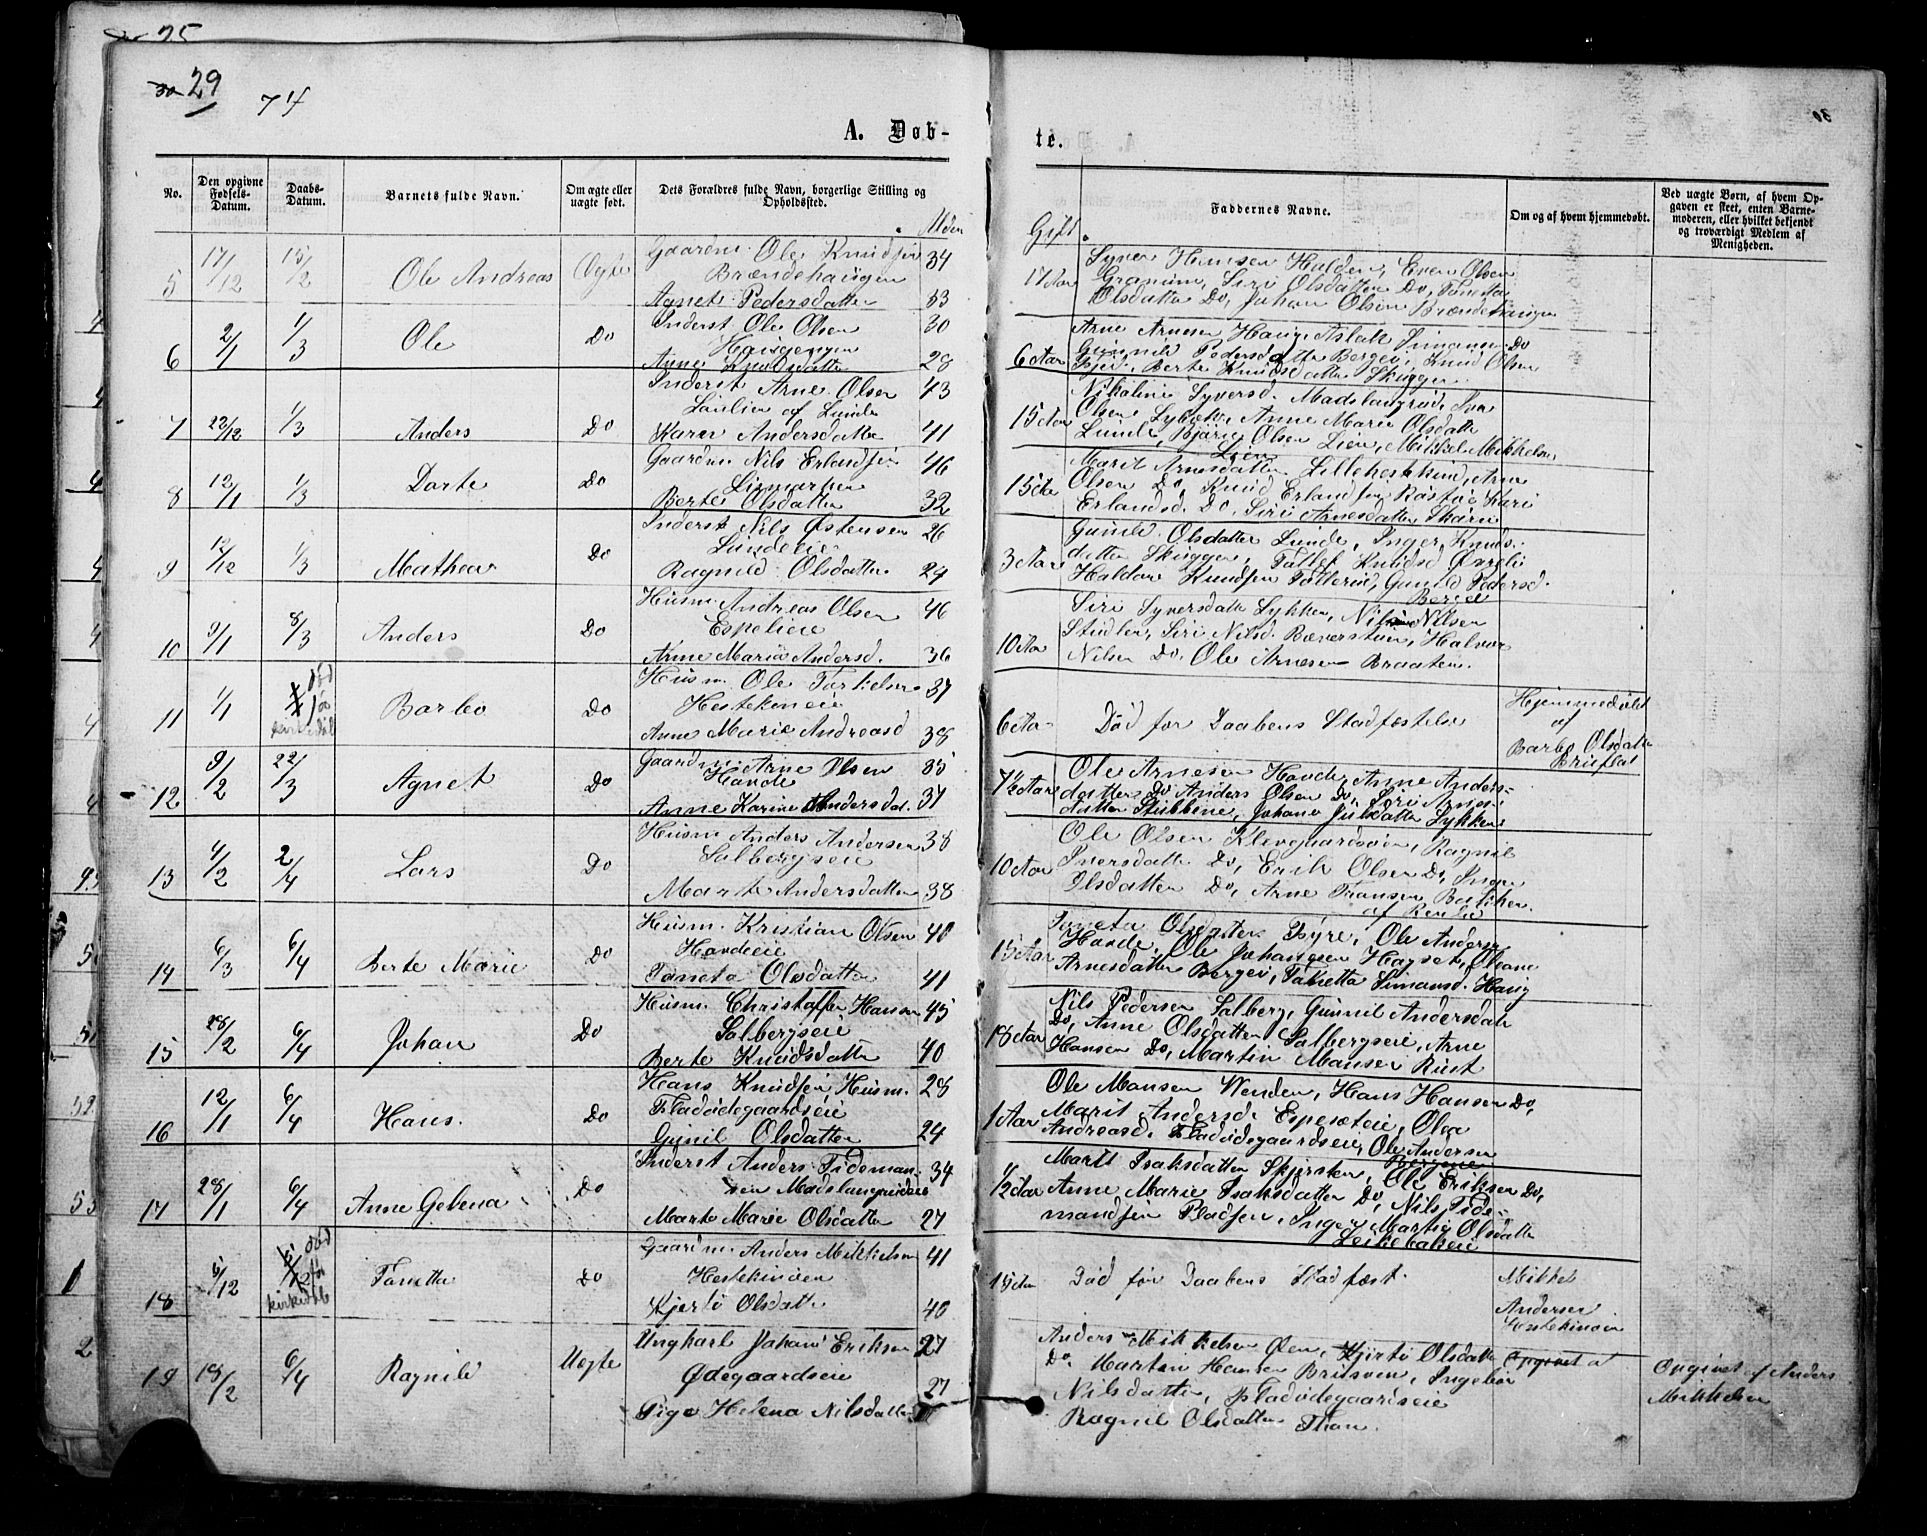 25
30 29
74
30
A. Døb-
te.
No.
Den opgivne Fødsels-Datum.
Daabs-Datum.
Barnets fulde Navn.
Om ægte eller uægte født.
Dets Forældres fulde Navn, borgerlige Stilling og Opholdssted.
Alder
Gift
Faddernes Navne.
Om og af hvem hjemmedøbt.
Ved uægte Børn, af hvem Opgaven er skeet, enten Barnemoderen, eller hvilket bekjendt og troværdigt Medlem af Menigheden.
5 17/12 15/2 Ole Andreas Ægte
Gaardm. Ole Knudsen 34
Brændehaugen
Agnet Pedersdatter 33
17 Aar
Syver Hansen Halden, Even Olsen
Granum, Siri Olsdatter Do, Tonetta
Olsdatter Do, Johan Olsen Brændehaugen
6 2/1 1/3 Ole Do
Inderst Ole Olsen 30
Haugengen
Anne Knudsdatter 28
6 Aar
Arne Arnesen Haug, Aslak Simansen Do
Gunnild Pedersdatter Berger, Knud Olsen
Berte Knudsdatter Skuggen
7 22/12 1/3 Anders Do
Inderst Arne Olsen 43
af Lunde
Karen Andersdatter 41
15 Aar
Nikoline Syversd. Madslangrud, Iver
Olsen Lybæk, Anne Marie Olsdatter
Lunde, Bjørn Olsen Lien, Mikkel Mikkelsen
Lien
8 12/1 1/3 Dorte Do
Gaardm Nils Erlandsen 46
Berte Olsdatter 32
15 Aar
Marit Arnesdatter Lillehestekind, Arne
Olsen Do, Knud Erlandsen Rastøe, Kari
Erlandsd. Do. Siri Arnesdatter
9 12/12 1/3 Mathea Do
Inderst Nils Østensen 26
Lundeeie
Ragnild Olsdatter 24
3 Aar
Gunild Olsdatter Lunde, Inger Knuds-
datter Skuggen, Tollef Knudsd
Haldor Knudsen Gunild Pedersd.
Berge
10 9/1 8/3 Anders Do
Husm. Andreas Olsen 46
Espelieie
Anne Marie Andersd. 36
10 Aar
Siri Syversdatter Lykken, Nils Nilsen
Siri Nilsd. Halvor
Nilsen Do, Ole Arnesen Braaten.
11 1/1 død før kirkedåb Barbo Do
Husm Ole Torkelsen 37
Hestekineie
Anne Marie Andreasd 38
6 Aar
Død før Daabens Stadfæstelse
Hjemmedøbt
af
Barbo Olsdatter
Bruflat
12 9/2 22/3 Agnet Do
Gaardm. Arne Olsen 35
Havde
Anne Karine Andersdat. 31
7½ Aar
Ole Arnesen Havde, Anne Anders-
datter Do Anders Olsen Do, Siri Arnes-
datter Stubbene, Johane Julsdatter Lykken
13 4/2 2/4 Lars Do
Husm Anders Andersen 38
Salbergseie
Marte Andersdatter 38
10 Aar
Ole Olsen Klevgaardsøien, Ragnil
Iversdatter Do, Erik Olsen Do, Inger
Olsdatter Do, Arne Fransen
14 6/3 6/4 Berte Marie Do
Husm. Kristian Olsen 40
Havdeeie
Toneta Olsdatter 41
15 Aar
Toneta Olsdatter Byre, Ole Anders
Havde, Ole Johansen Hagset, Oleane
Arnesdatter Berger, Tonetta Simansd. Haug
15 28/2 6/4 Johan Do
Husm. Christoffer Hansen 45
Salbergseie
Berte Knudsdatter 40
18 Aar
Nils Pedersen Salberg, Gunnil Andersdatt
Do, Anne Olsdatter Salbergseie, Arne
Hansen Do, Martin Mansen Rust
16 12/1 6/4 Hans. Do
Hans Knudsen Husm. 28
Fladødegaardseie
Gunil Olsdatter 24
1 Aar
Ole Mansen Wenden, Hans Hansen Do,
Marit Andersd. Espesetei, Olea
Andreasd. Fladødegaardseie, Ole Andersen
17 28/1 6/4 Anne Gelena Do
Inderst Anders Tideman- 34
sen Madslangrudeie
Marte Marie Olsdatter 27
½ Aar
Marit Isaksdatter Skjersten, Ole Eriksen Do,
Anne Marie Isaksdatter Do, Nils Tide-
mandsen Pladsen, Inger Martia Olsdatter
18 6/12 død før kirkedåb Tonetta Do
Gaardm. Anders Mikkelsen 41
Hestekinden
Kjersti Olsdatter 40
15 Aar
Død før Daabens Stadfæst.
Mikkel
Andersen
Hestekinden
19 18/2 6/4 Ragnild Uægte
Ungkarl Johan Eriksen 27
Ødegaardseie
Pige Helena Nilsdatter 27
Anders Mikkelsen Øien, Kjersti Olsdatter
Do. Martin Hansen Ingebor
Nilsdatter, Fladødegaardseie
Ragnil Olsdatter Thon.
Opgivet af
Opgivet af Anders
Mikkelsen